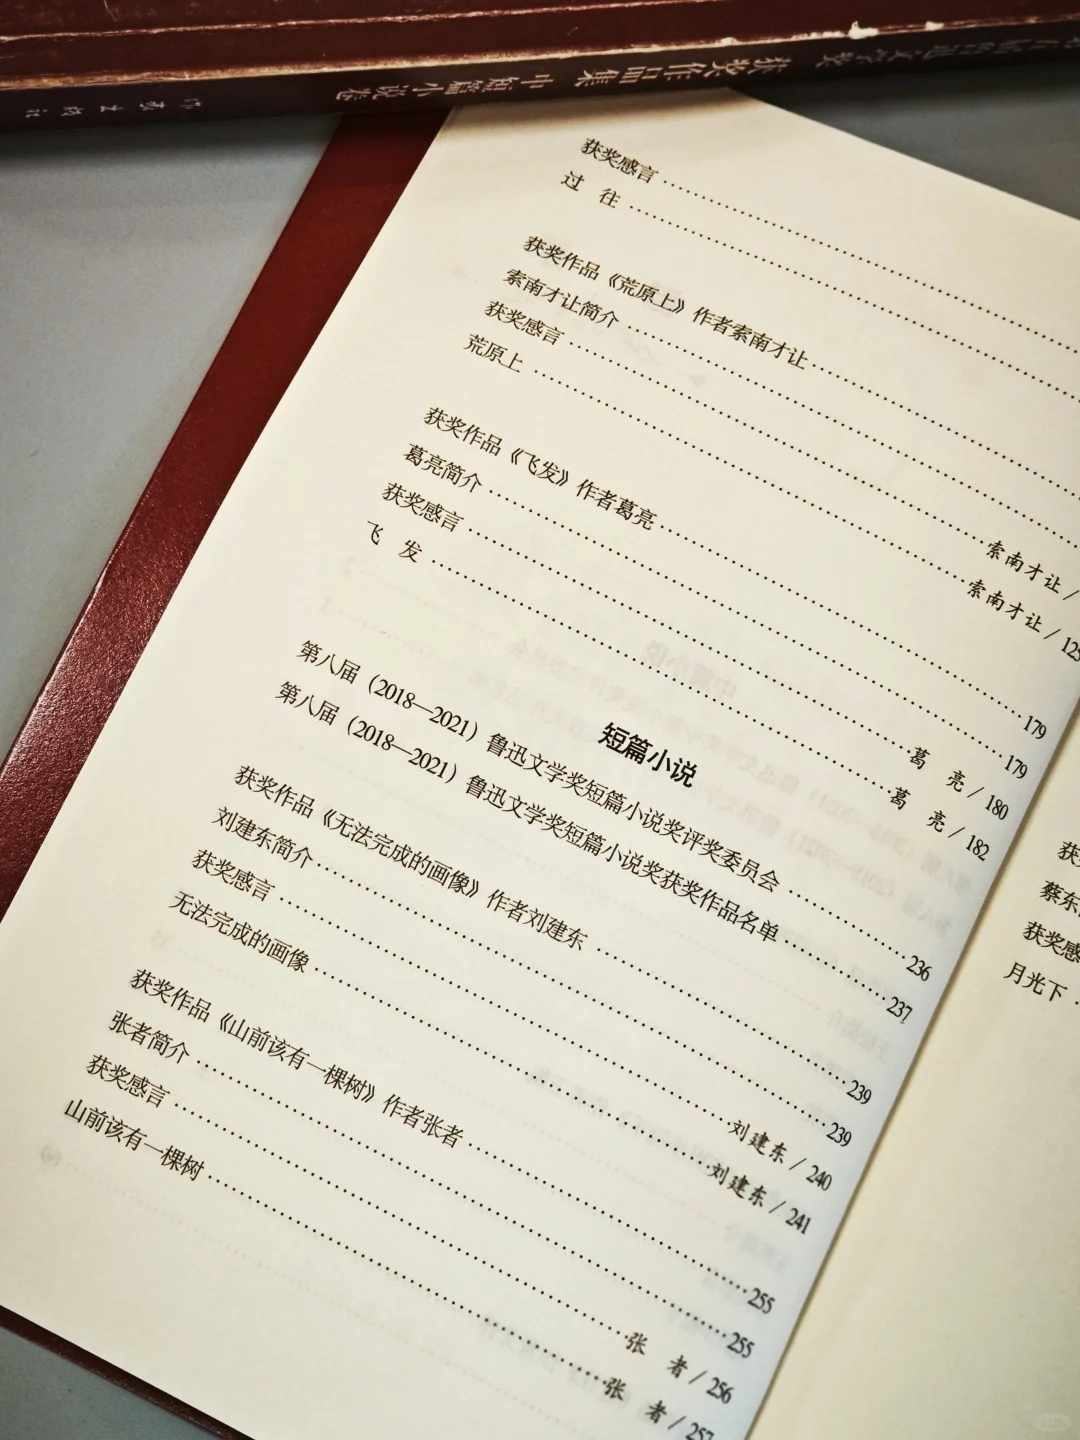 获奖作品集 中短篇小说卷
获奖感言
过 往
获奖作品《荒原上》作者索南才让
索南才让简介
获奖感言 索南才让 /
荒原上 索南才让 / 125
获奖作品《飞发》作者葛亮 179
葛亮简介 179
获奖感言 葛 亮 / 180
飞 发 葛 亮 / 182
短篇小说
第八届（2018—2021）鲁迅文学奖短篇小说奖评奖委员会 236
第八届（2018—2021）鲁迅文学奖短篇小说奖获奖作品名单 237
获奖作品《无法完成的画像》作者刘建东 239
刘建东简介 239
获奖感言 刘建东 / 240
无法完成的画像 刘建东 / 241
获奖作品《山前该有一棵树》作者张者 255
张者简介 255
获奖感言 张 者 / 256
山前该有一棵树 张 者 / 257
获
蔡东
获奖感
月光下